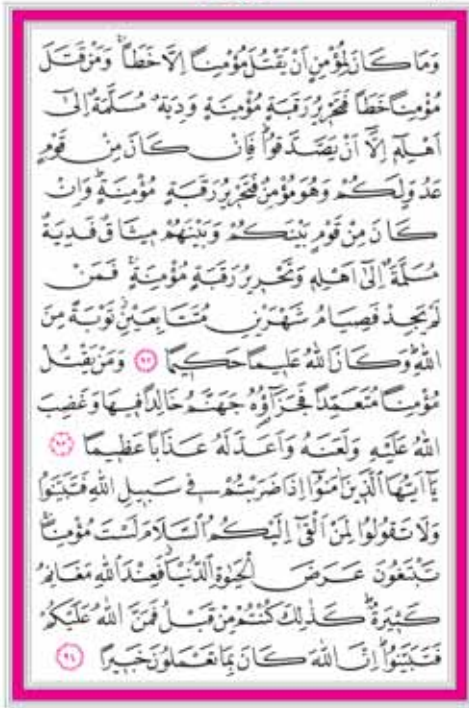 وَمَا كَانَ لِمُؤْمِنٍ اَنْ يَقْتُلَ مُؤْمِنًا اِلَّا خَطَـًٔا وَمَنْ قَتَلَ
مُؤْمِنًا خَطَـًٔا فَتَحْرِيرُ رَقَبَةٍ مُؤْمِنَةٍ وَدِيَةٌ مُسَلَّمَةٌ اِلٰٓى
اَهْلِهٖٓ اِلَّٓا اَنْ يَصَّدَّقُوا فَاِنْ كَانَ مِنْ قَوْمٍ
عَدُوٍّ لَكُمْ وَهُوَ مُؤْمِنٌ فَتَحْرِيرُ رَقَبَةٍ مُؤْمِنَةٍ وَاِنْ
كَانَ مِنْ قَوْمٍ بَيْنَكُمْ وَبَيْنَهُمْ مِيثَاقٌ فَدِيَةٌ
مُسَلَّمَةٌ اِلٰٓى اَهْلِهٖ وَتَحْرِيرُ رَقَبَةٍ مُؤْمِنَةٍ فَمَنْ
لَمْ يَجِدْ فَصِيَامُ شَهْرَيْنِ مُتَتَابِعَيْنِ تَوْبَةً مِنَ
اللّٰهِ وَكَانَ اللّٰهُ عَلِيمًا حَكِيمًا ﴿٩٢﴾ وَمَنْ يَقْتُلْ
مُؤْمِنًا مُتَعَمِّدًا فَجَزَٓاؤُ۬هُ جَهَنَّمُ خَالِدًا فِيهَا وَغَضِبَ
اللّٰهُ عَلَيْهِ وَلَعَنَهُ وَاَعَدَّ لَهُ عَذَابًا عَظِيمًا ﴿٩٣﴾
يَٓا اَيُّهَا الَّذِينَ اٰمَنُٓوا اِذَا ضَرَبْتُمْ فِي سَبِيلِ اللّٰهِ فَتَبَيَّنُوا
وَلَا تَقُولُوا لِمَنْ اَلْقٰٓى اِلَيْكُمُ السَّلَامَ لَسْتَ مُؤْمِنًا
تَبْتَغُونَ عَرَضَ الْحَيٰوةِ الدُّنْيَا فَعِنْدَ اللّٰهِ مَغَانِمُ
كَثِيرَةٌ كَذٰلِكَ كُنْتُمْ مِنْ قَبْلُ فَمَنَّ اللّٰهُ عَلَيْكُمْ
فَتَبَيَّنُوا اِنَّ اللّٰهَ كَانَ بِمَا تَعْمَلُونَ خَبِيرًا ﴿٩٤﴾